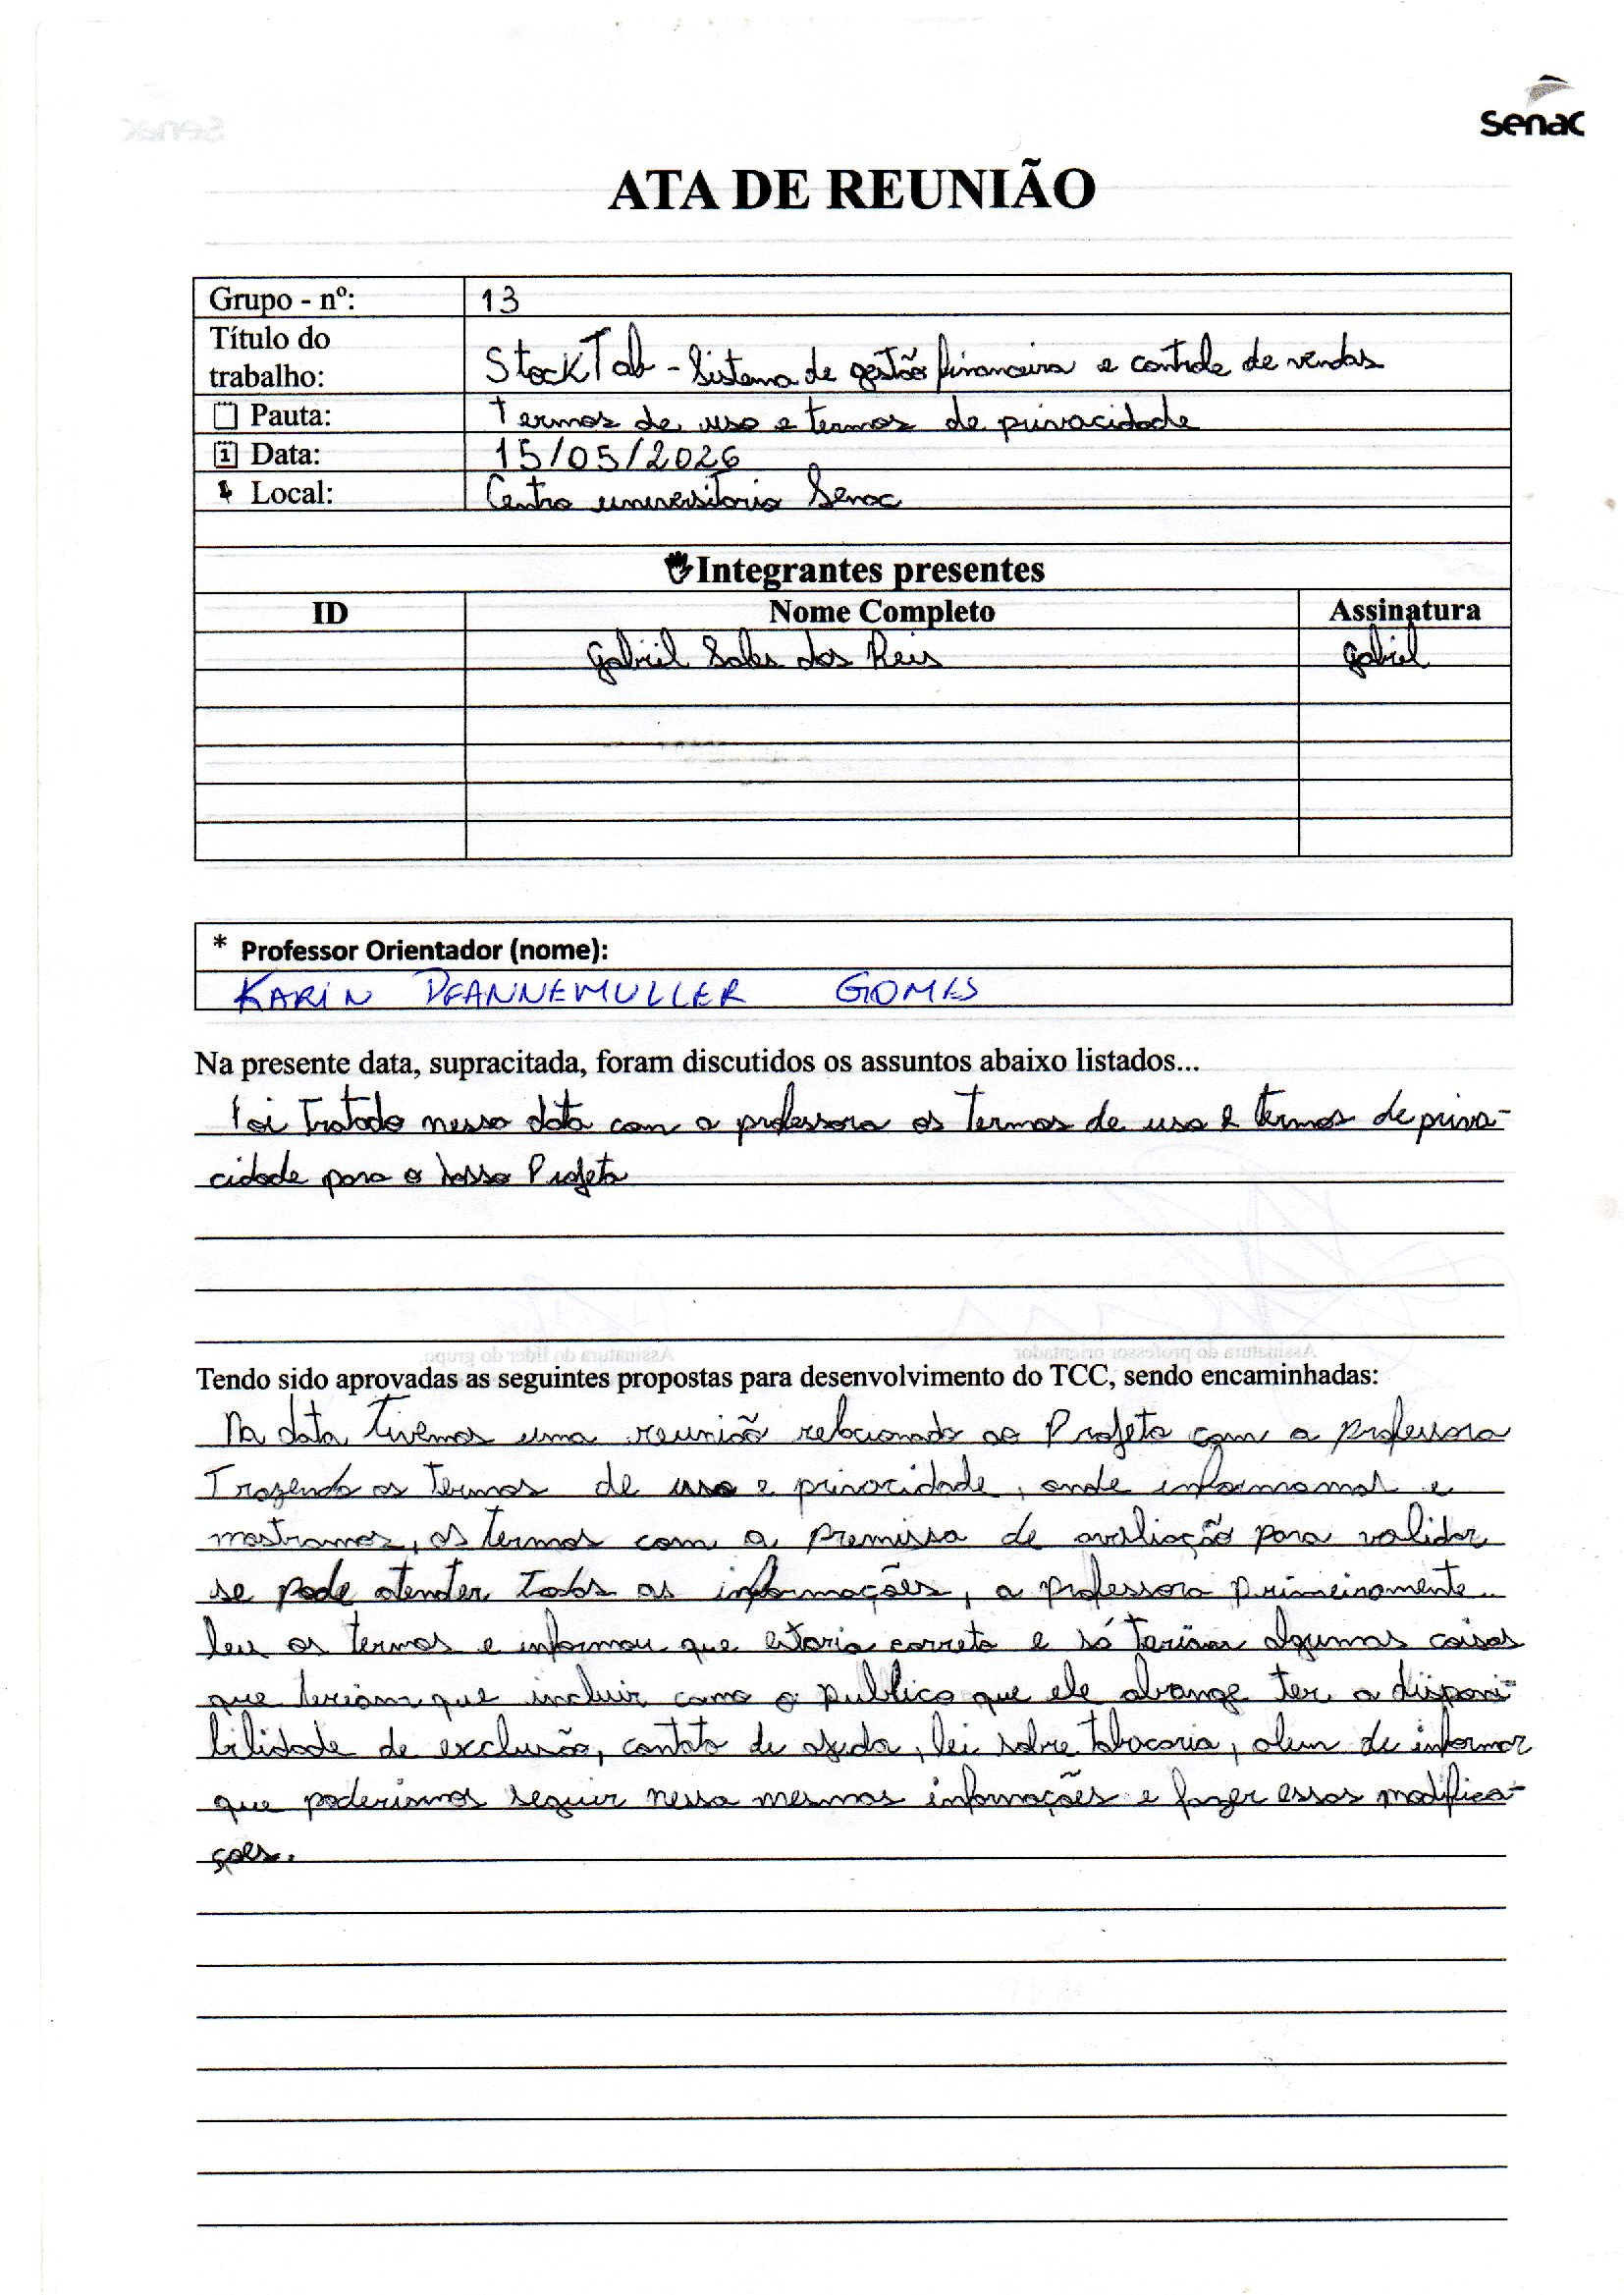 Senac
ATA DE REUNIÃO
Grupo - nº: 13
Título do trabalho: StockTab - Sistema de gestão financeira e controle de vendas
Pauta: Termos de uso e termos de privacidade
Data: 15/05/2026
Local: Centro universitario Senac
Integrantes presentes
ID Nome Completo Assinatura
Gabriel Sales dos Reis Gabriel
* Professor Orientador (nome):
KARIN PFANNEMULLER GOMES
Na presente data, supracitada, foram discutidos os assuntos abaixo listados...
Foi Tratado nessa data com a professora os Termos de uso e termos de priva-
cidade para o nosso Projeto
Assinatura do líder do grupo. Assinatura do professor orientador
Tendo sido aprovadas as seguintes propostas para desenvolvimento do TCC, sendo encaminhadas:
Na data Tivemos uma reunião relacionado ao Projeto com a professora
Trazendo os Termos de uso e privacidade, onde informamos e
mostramos, os termos com a premissa de avaliação para validar
se pode atender Todas as informações, a professora primeiramente
leu os termos e informou que estaria correto e só teriam algumas coisas
que teriam que incluir como o publico que ele abrange ter a disponi-
bilidade de exclusão, contato de ajuda, lei sobre tabacaria, alem de informar
que poderiamos seguir nessa mesmas informações e fazer essas modifica-
ções.